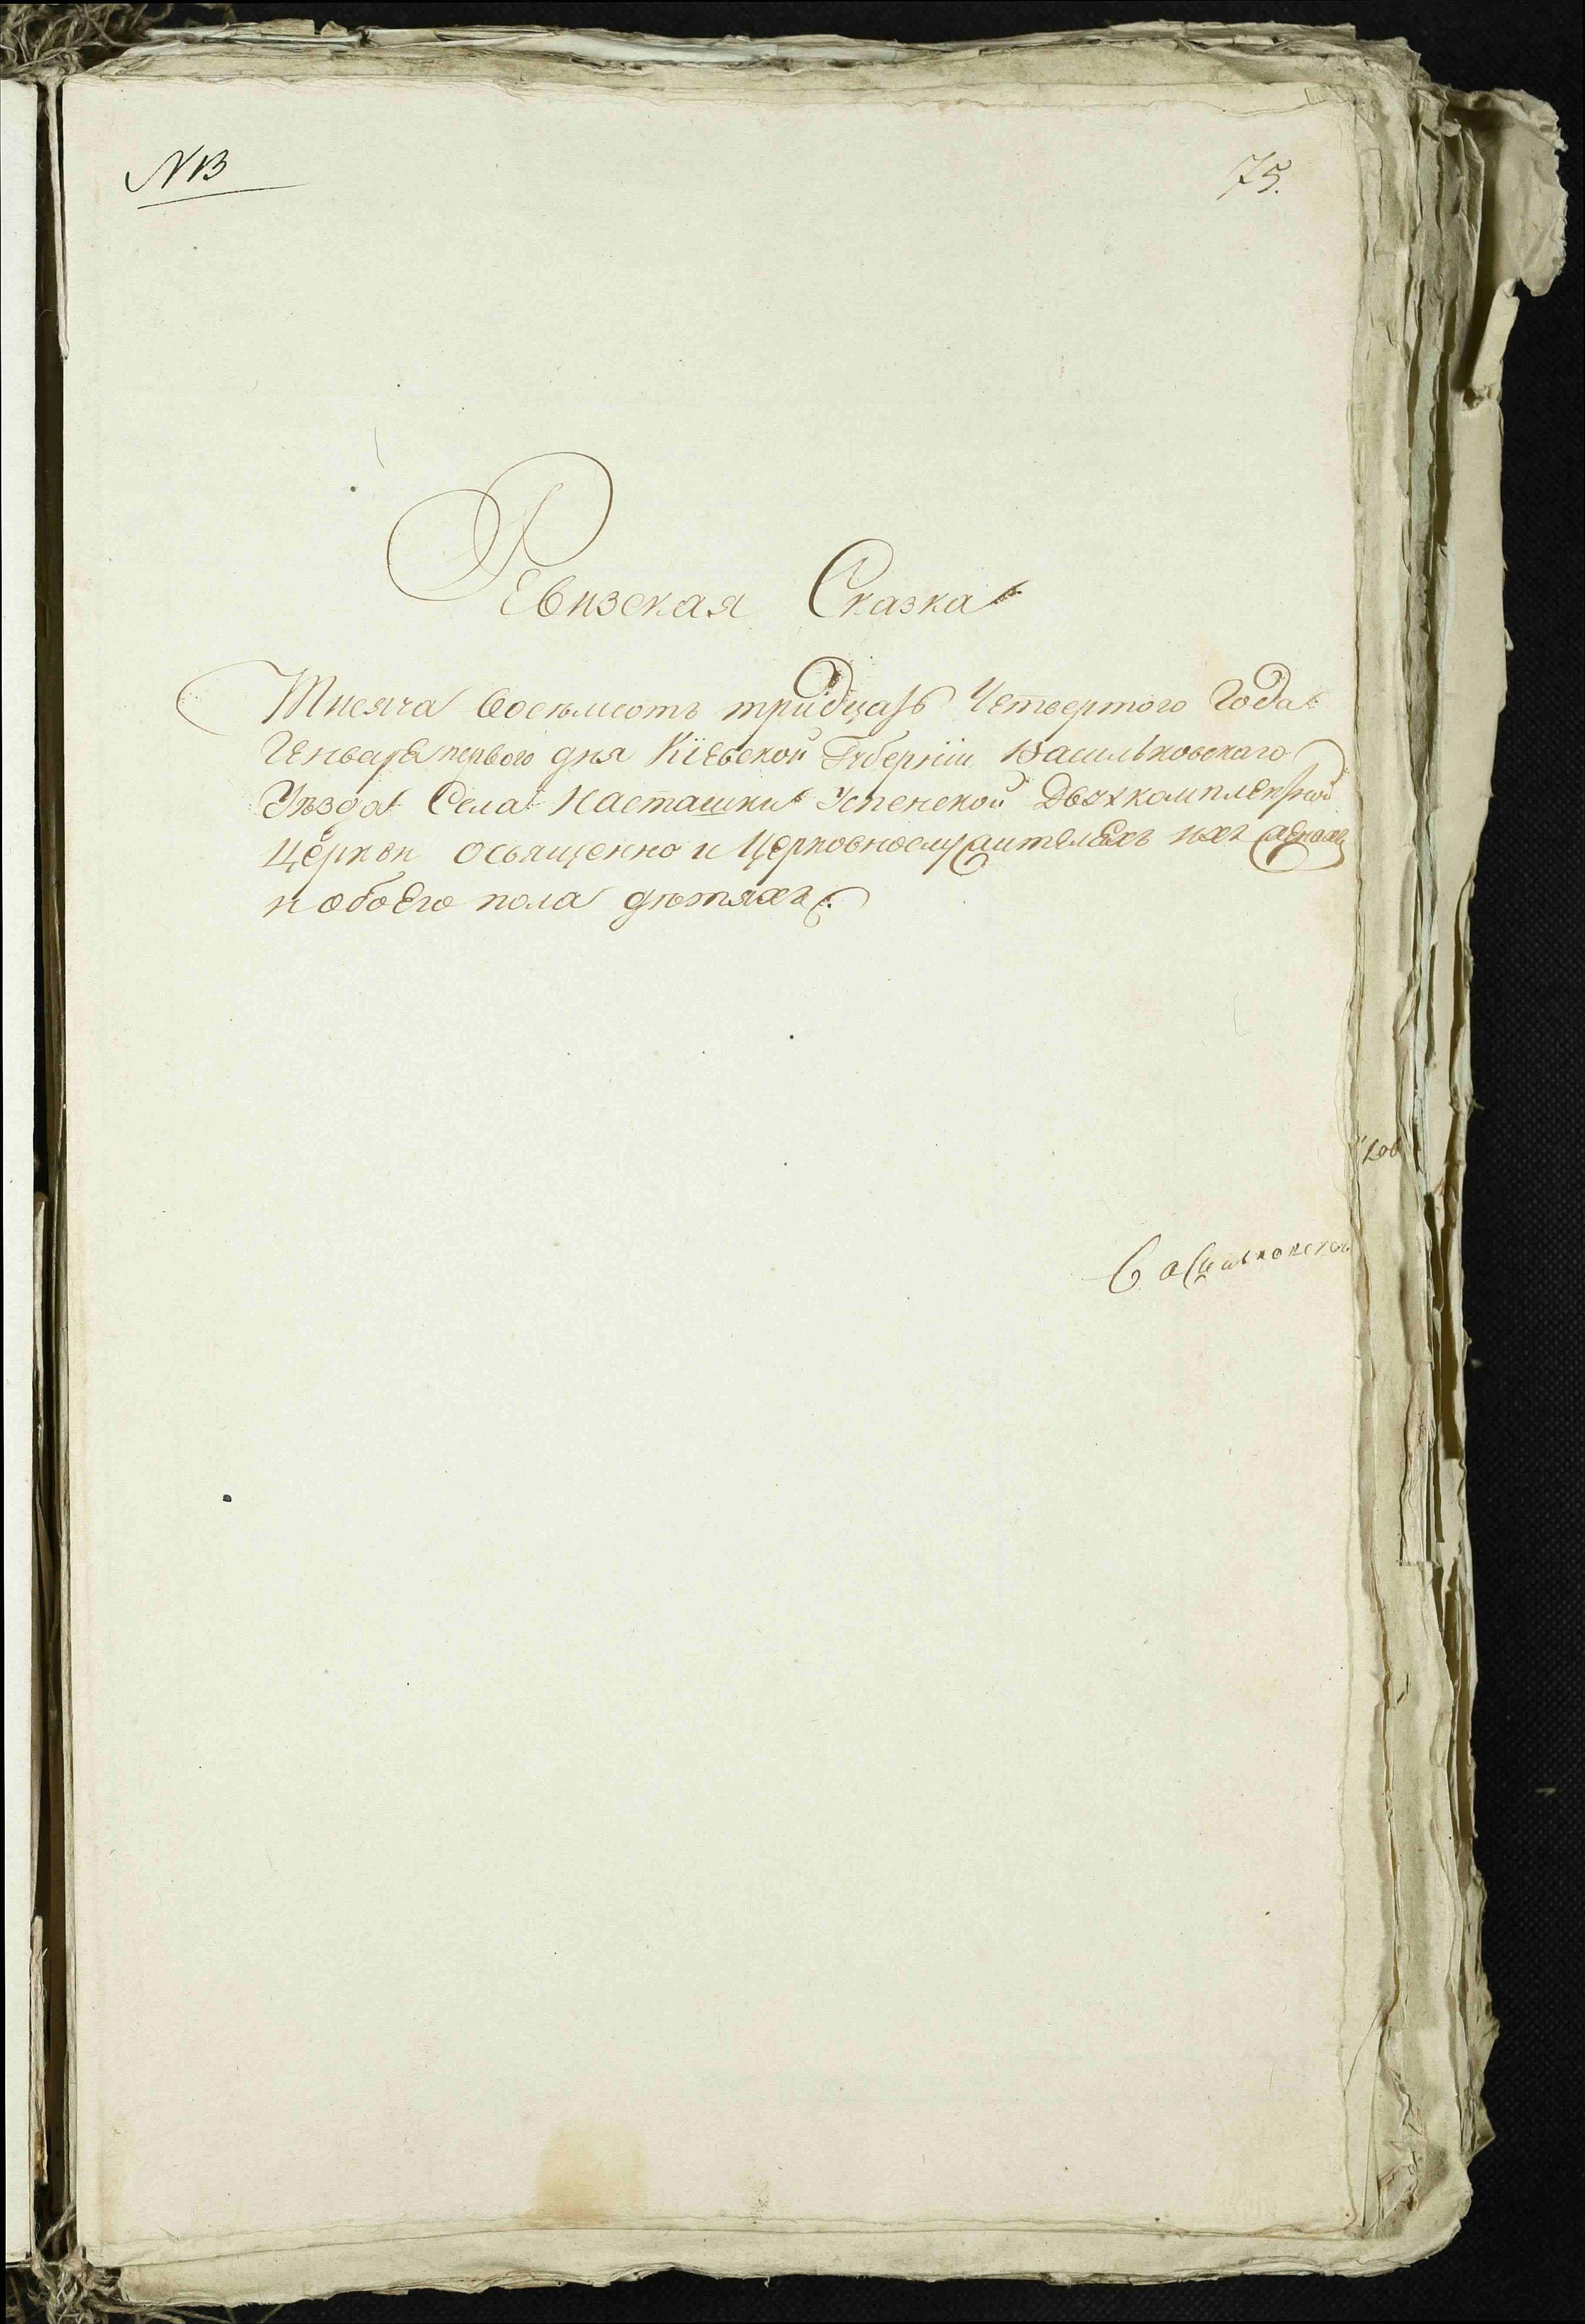 NB
75.
Ревизская Сказка
Тисяча Восемьсотъ тридцать Четвертого Года
Генваря первого дня Кіевской Губерніи Васильковскаго
Уѣзда Села Насташки Успенской Двохкомплектной
Церкви освященно и Церковнослужителяхъ ихъ женахъ
и обоего пола дѣтяхъ.